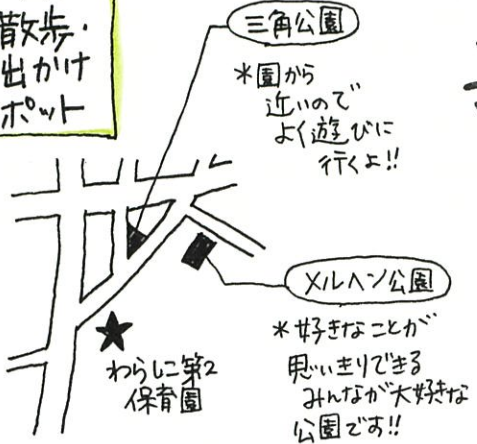 散歩・
出かけ
ポット
三角公園
*園から
近いので
よく遊びに
行くよ!!
メルヘン公園
*好きなことが
思い きりできる
みんなが大好きな
公園です!!
わらしこ第2
保育園